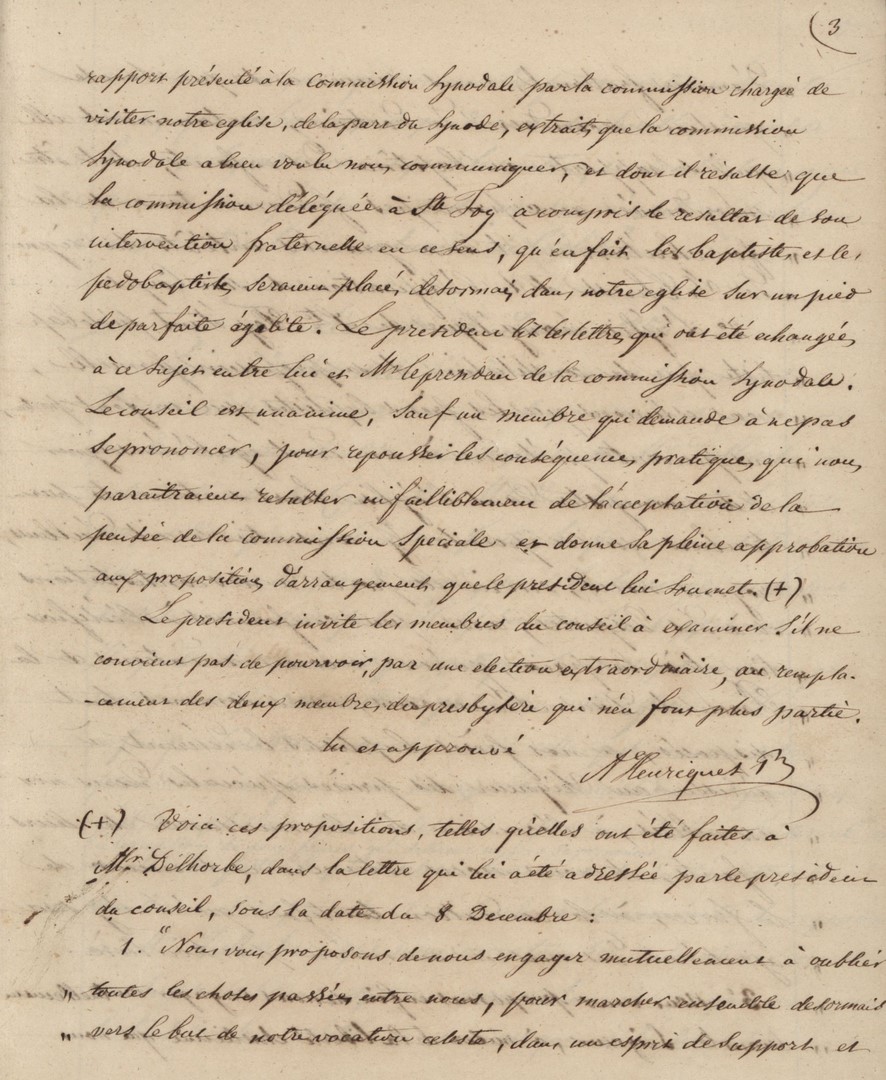 (3
rapport présenté à la Commission Synodale par la commission chargée de
visiter notre eglise, de la part du Synode, extrait, que la commission
Synodale a bien voulu nous communiquer, et dont il résulte que
la commission déléguée à Ste Foy a compris le resultat de son
intervention fraternelle en ce sens, qu'en fait les baptistes et les
pedobaptistes seraient placés desormais dans notre eglise sur un pied
de parfaite égalité. Le president lit les lettres qui ont été echangées
à ce sujet entre lui et Mr le president de la commission Synodale.
Le conseil est unanime, sauf un membre qui demande à ne pas
se prononcer, pour repousser les conséquences pratiques qui nous
paraîtraient resulter infailliblement de l'acceptation de la
pensée de la commission Speciale et donne sa pleine approbation
aux propositions d'arrangement que le president lui soumet. (+)
Le president invite les membres du conseil à examiner s'il ne
convient pas de pourvoir, par une election extraordinaire, au rempla-
-cement des deux membres du presbytère qui n'en font plus partie.
lu et approuvé
A Henriquet
(+) Voici ces propositions, telles qu'elles ont été faites à
Mr. Delhorbe, dans la lettre qui lui a été adressée par le president
du conseil, sous la date du 8 Decembre :
1. "Nous vous proposons de nous engager mutuellement à oublier
" toutes les choses passées entre nous, pour marcher ensemble desormais
" vers le but de notre vocation céleste, dans un esprit de support et